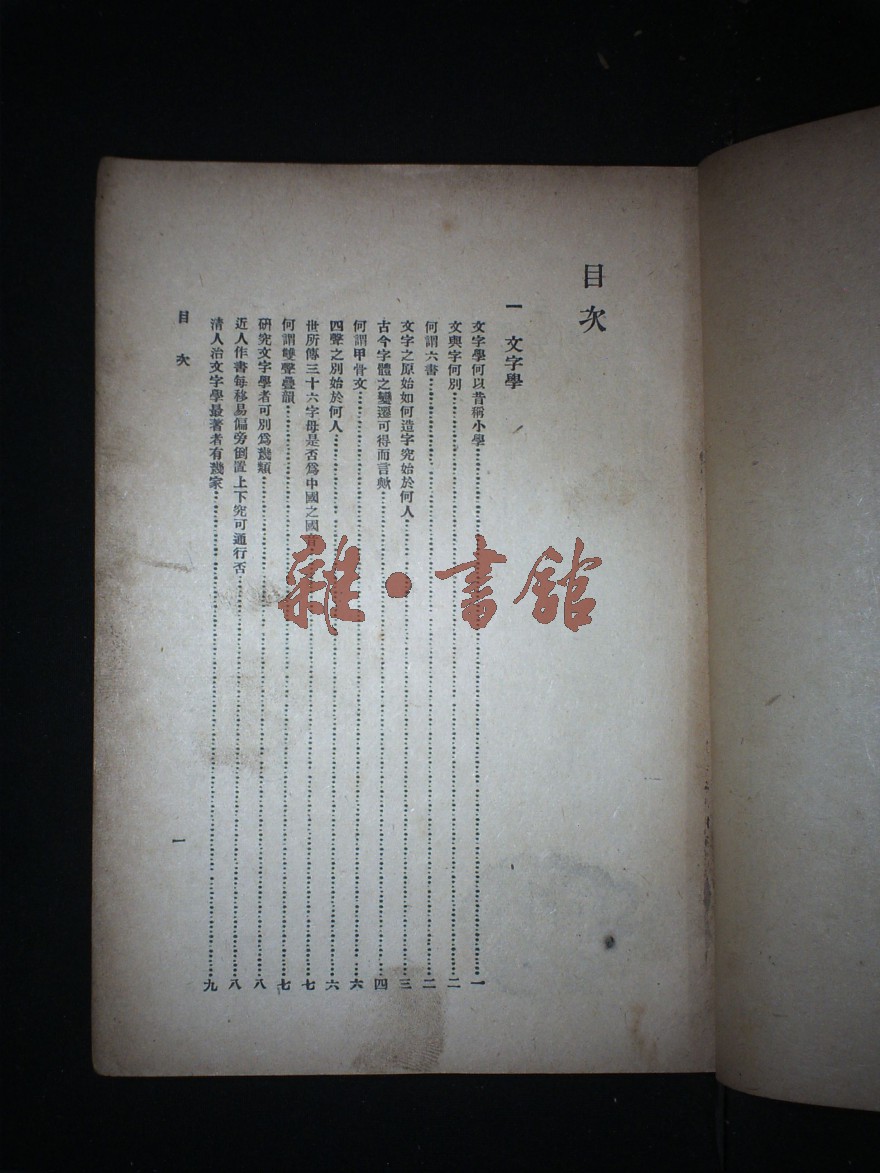 目次
一 文字學
文字學何以昔稱小學……一
文與字何別……二
何謂六書……二
文字之原始如何造字究始於何人……三
古今字體之變遷可得而言歟……四
何謂甲骨文……六
四聲之別始於何人……六
世所傳三十六字母是否爲中國之國……七
何謂雙聲疊韻……七
研究文字學者可別爲幾類……八
近人作書每移易偏旁倒置上下究可通行否……八
清人治文字學最著者有幾家……九
目次
一
雜·書館